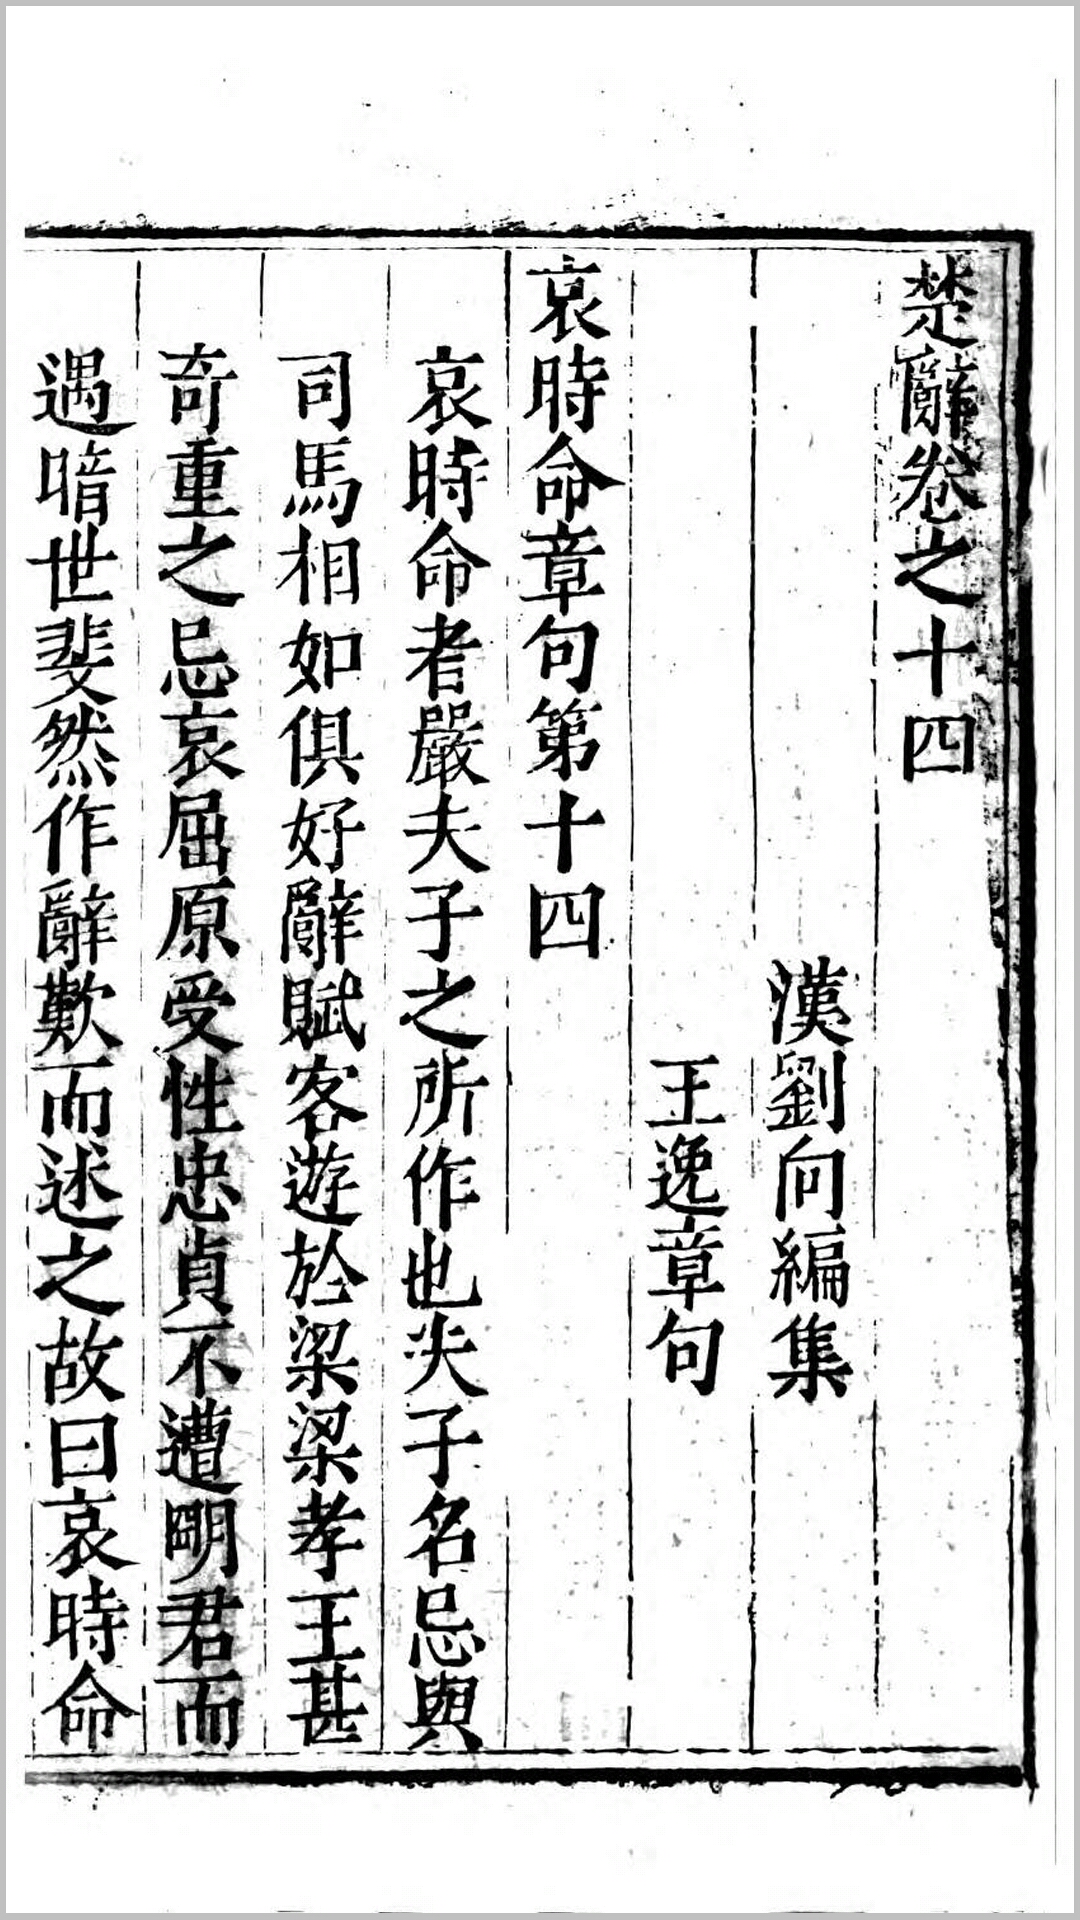 楚辭卷之十四
漢劉向編集
王逸章句
哀時命章句第十四
哀時命者嚴夫子之所作也夫子名忌與
司馬相如俱好辭賦客遊於梁梁孝王甚
奇重之忌哀屈原受性忠貞不遭明君而
遇暗世斐然作辭歎而述之故曰哀時命